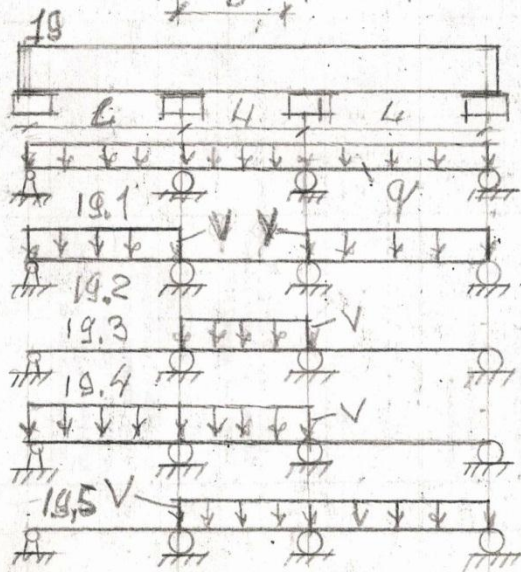 19
L 4 4
19.1 q
V V
19.2
19.3 V
19.4
V
19,5 V